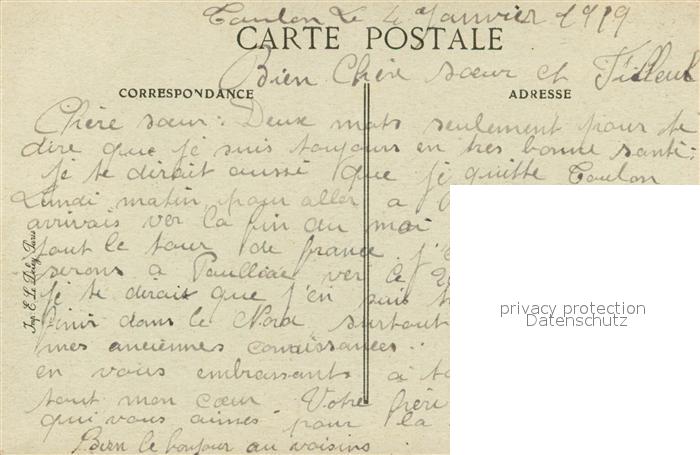 Toulon Le 4 Janvier 1919
CARTE POSTALE
Bien Chère sœur et Filleul
CORRESPONDANCE
ADRESSE
Chère sœur: Deux mots seulement pour te
dire que je suis toujours en tres bonne santé:
je te dirait aussi que je quitte Toulon
Lundi matin pour aller a
arrivais ver la fin du moi
tout le tour de france. j'
serons à Pauillac ver le 2
Je te dirait que j'en suis
finir dans le Nord surtout
mes anciennes connaissances..
en vous embrassants à t
tout mon cœur Votre frère
qui vous aimes. pour la
Bien le bonjour au voisins
Imp. E. Le Deley, Paris
privacy protection
Datenschutz